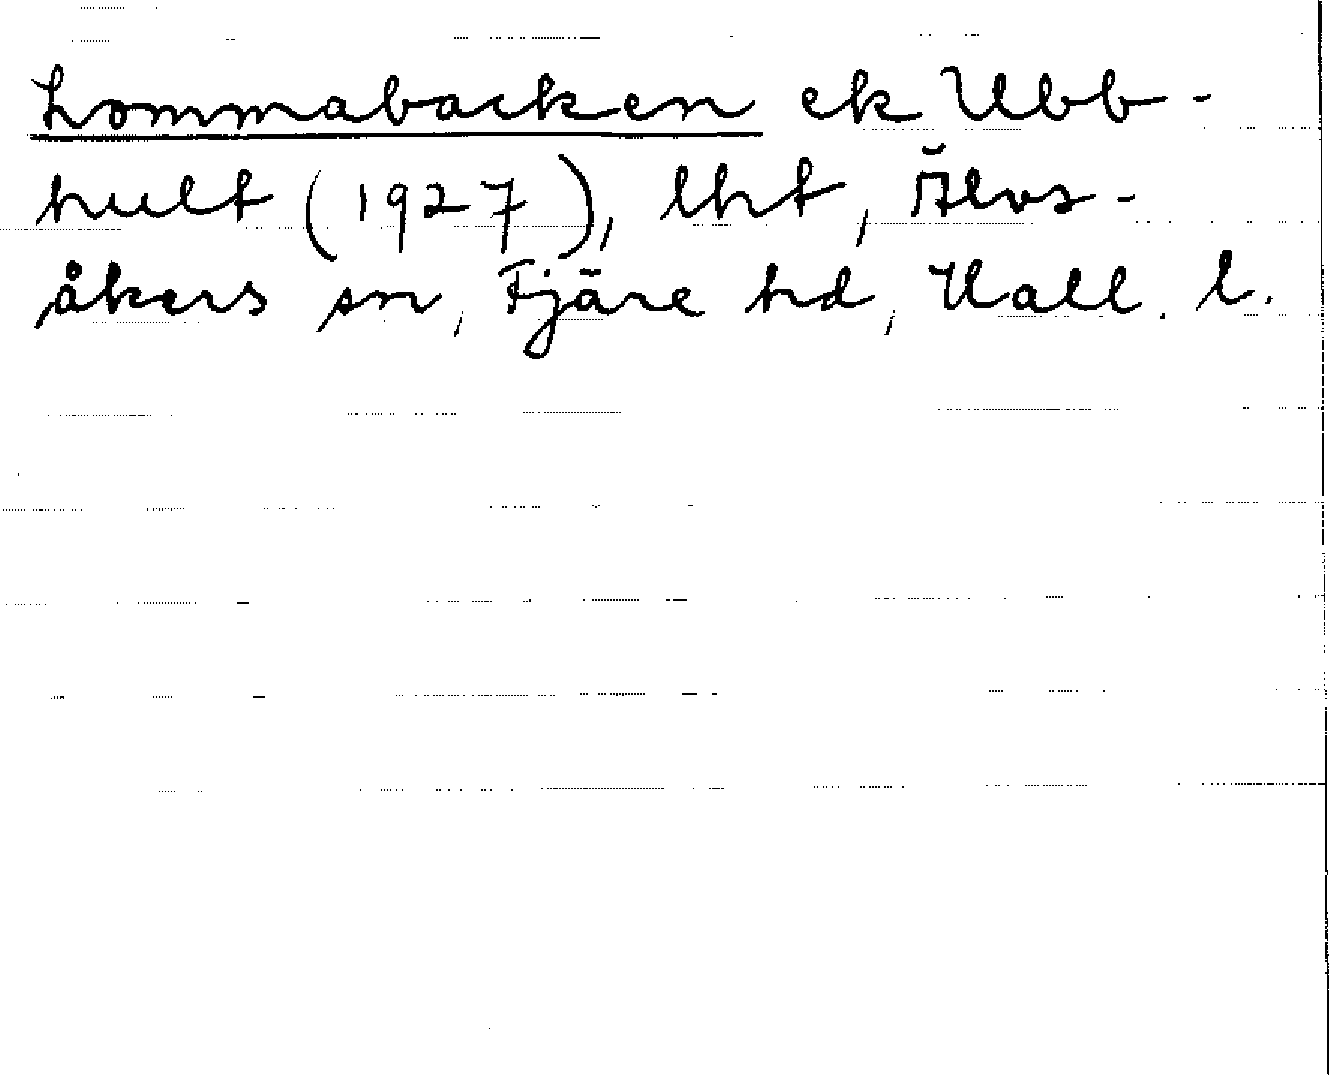 Lommabacken ek Ubb-
hult (1927), lht, Älvs-
åkers sn, Fjäre hd, Hall. l.